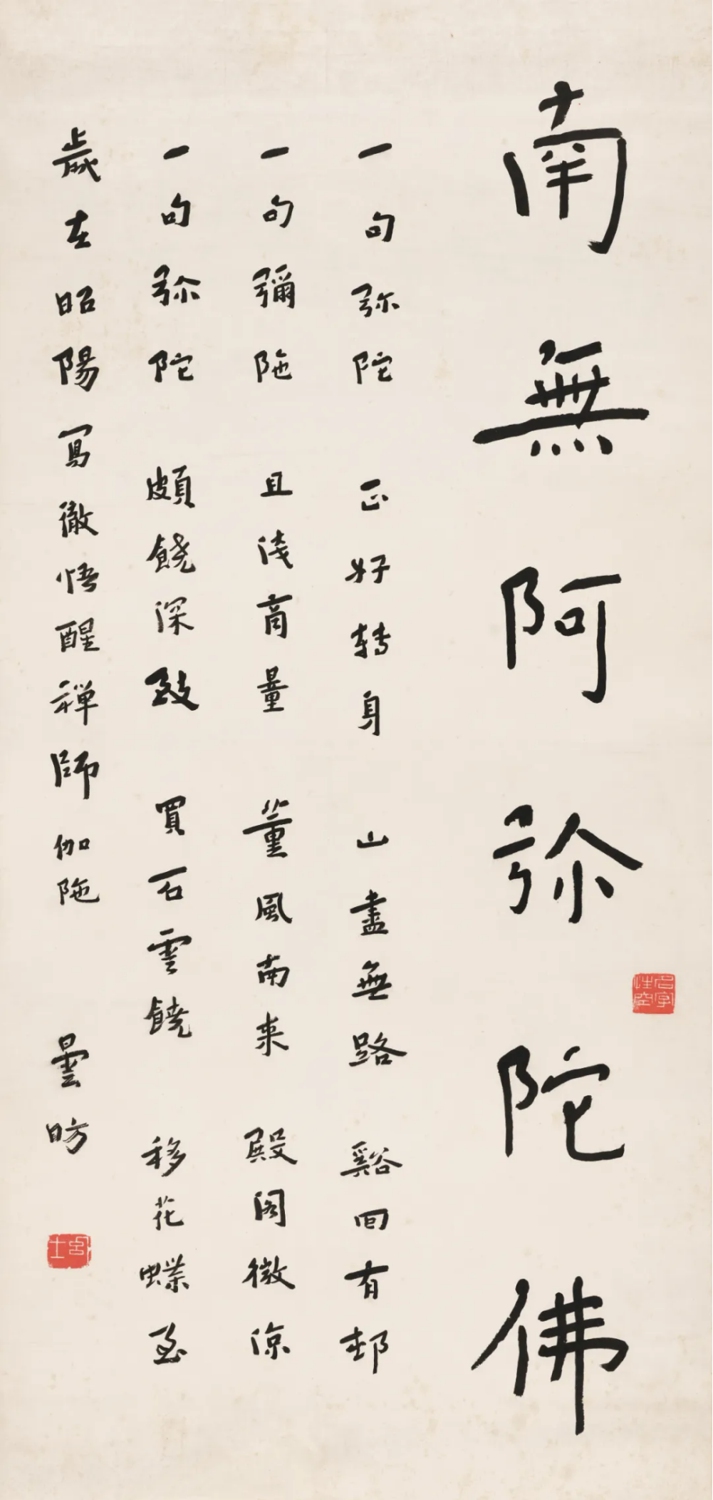 南無阿弥陀佛
一句弥陀 正好转身 山盡無路 谿回有邨
一句彌陁 且淺商量 薰風南来 殿阁微涼
一句弥陀 頗饒深致 買石雲饒 移花蝶至
歲在昭陽寫徹悟醒禅師伽陁 曇昉
名字性空